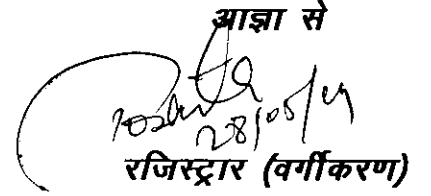 आज्ञा से
28/05/19
रजिस्ट्रार (वर्गीकरण)